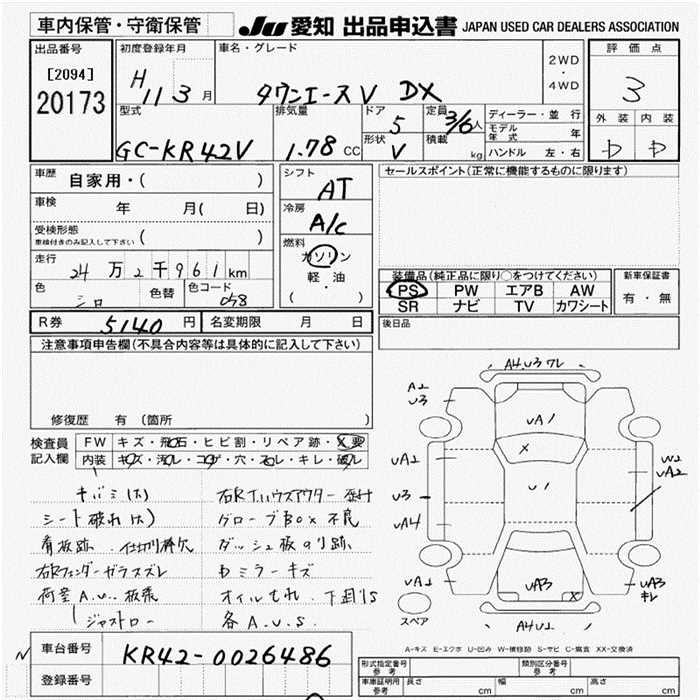 車内保管・守衛保管 JU 愛知 出品申込書 JAPAN USED CAR DEALERS ASSOCIATION
出品番号 初度登録年月 車名・グレード 評価点
[2094] H 11 3月 タウンエースV DX 2WD・4WD 3
20173
型式 排気量 ドア 定員 ディーラー・並行 外装 内装
GC-KR42V 1.78 CC 5 3/6人 モデル年式 年 D D
形状 V 積載 kg ハンドル 左・右
車歴 自家用・( ) シフト AT セールスポイント(正常に機能するものに限ります)
車検 年 月( 日) 冷房 A/C
受検形態 ( )
車検付きのみ記入して下さい
燃料 ガソリン
走行 24万2千961km 軽・油
( ・ )
装備品(純正品に限り○をつけてください) 新車保証書
色 シロ 色替 色コード 058 PS PW エアB AW 有・無
SR ナビ TV カワシート
R券 5140円 名変期限 月 日 後日品
注意事項申告欄(不具合内容等は具体的に記入して下さい)
修復歴 有 (箇所
検査員記入欄 FW キズ・飛石・ヒビ割・リペア跡・X要
内装 キズ・汚レ・コゲ・穴・スレ・キレ・破レ
キバミ(大) 右R T.ハウスアウター
シート破れ(大) グローブBox不良
看板跡 . 仕切り棒欠 ダッシュ板のり跡
右Rフェンダーガラスズレ Dミラーキズ
荷室A.U.. 板張 オイルもれ. 下廻りS
ジャストロー 各A.U.S.
A4.U3ワレ
A2
U3
UA1
X
UA2 W2
UA2
U3 U1
UA4
UA1 UA3 X UA3
キレ
スペア A4U2
A-キズ E-エクボ U-凹み W-補修跡 S-サビ C-腐食 XX-交換済
N 車台番号 KR42-0026486
登録番号
形式指定番号 参考 類別区分番号 参考
車庫証明用 参考 長さ cm 幅 cm 高さ cm